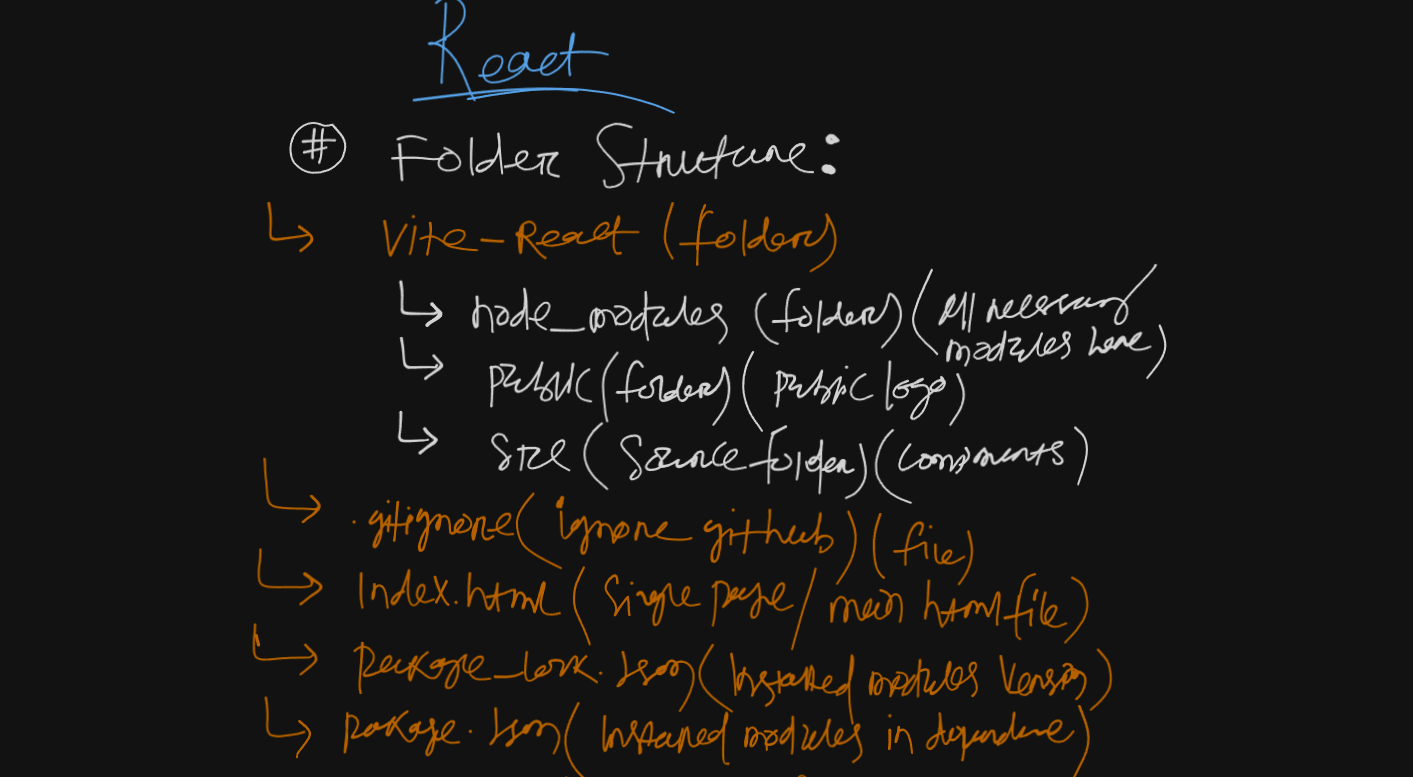 React
# Folder Structure:
↳ Vite-React (folder)
↳ node_modules (folder) (All necessary
modules here)
↳ public (folder) (public logo)
↳ src (Source folder) (components)
↳ .gitignore (ignore github) (file)
↳ Index.html (Single page / main html file)
↳ package_lock.Json (Installed modules Version)
↳ package.Json (Installed modules in dependence)